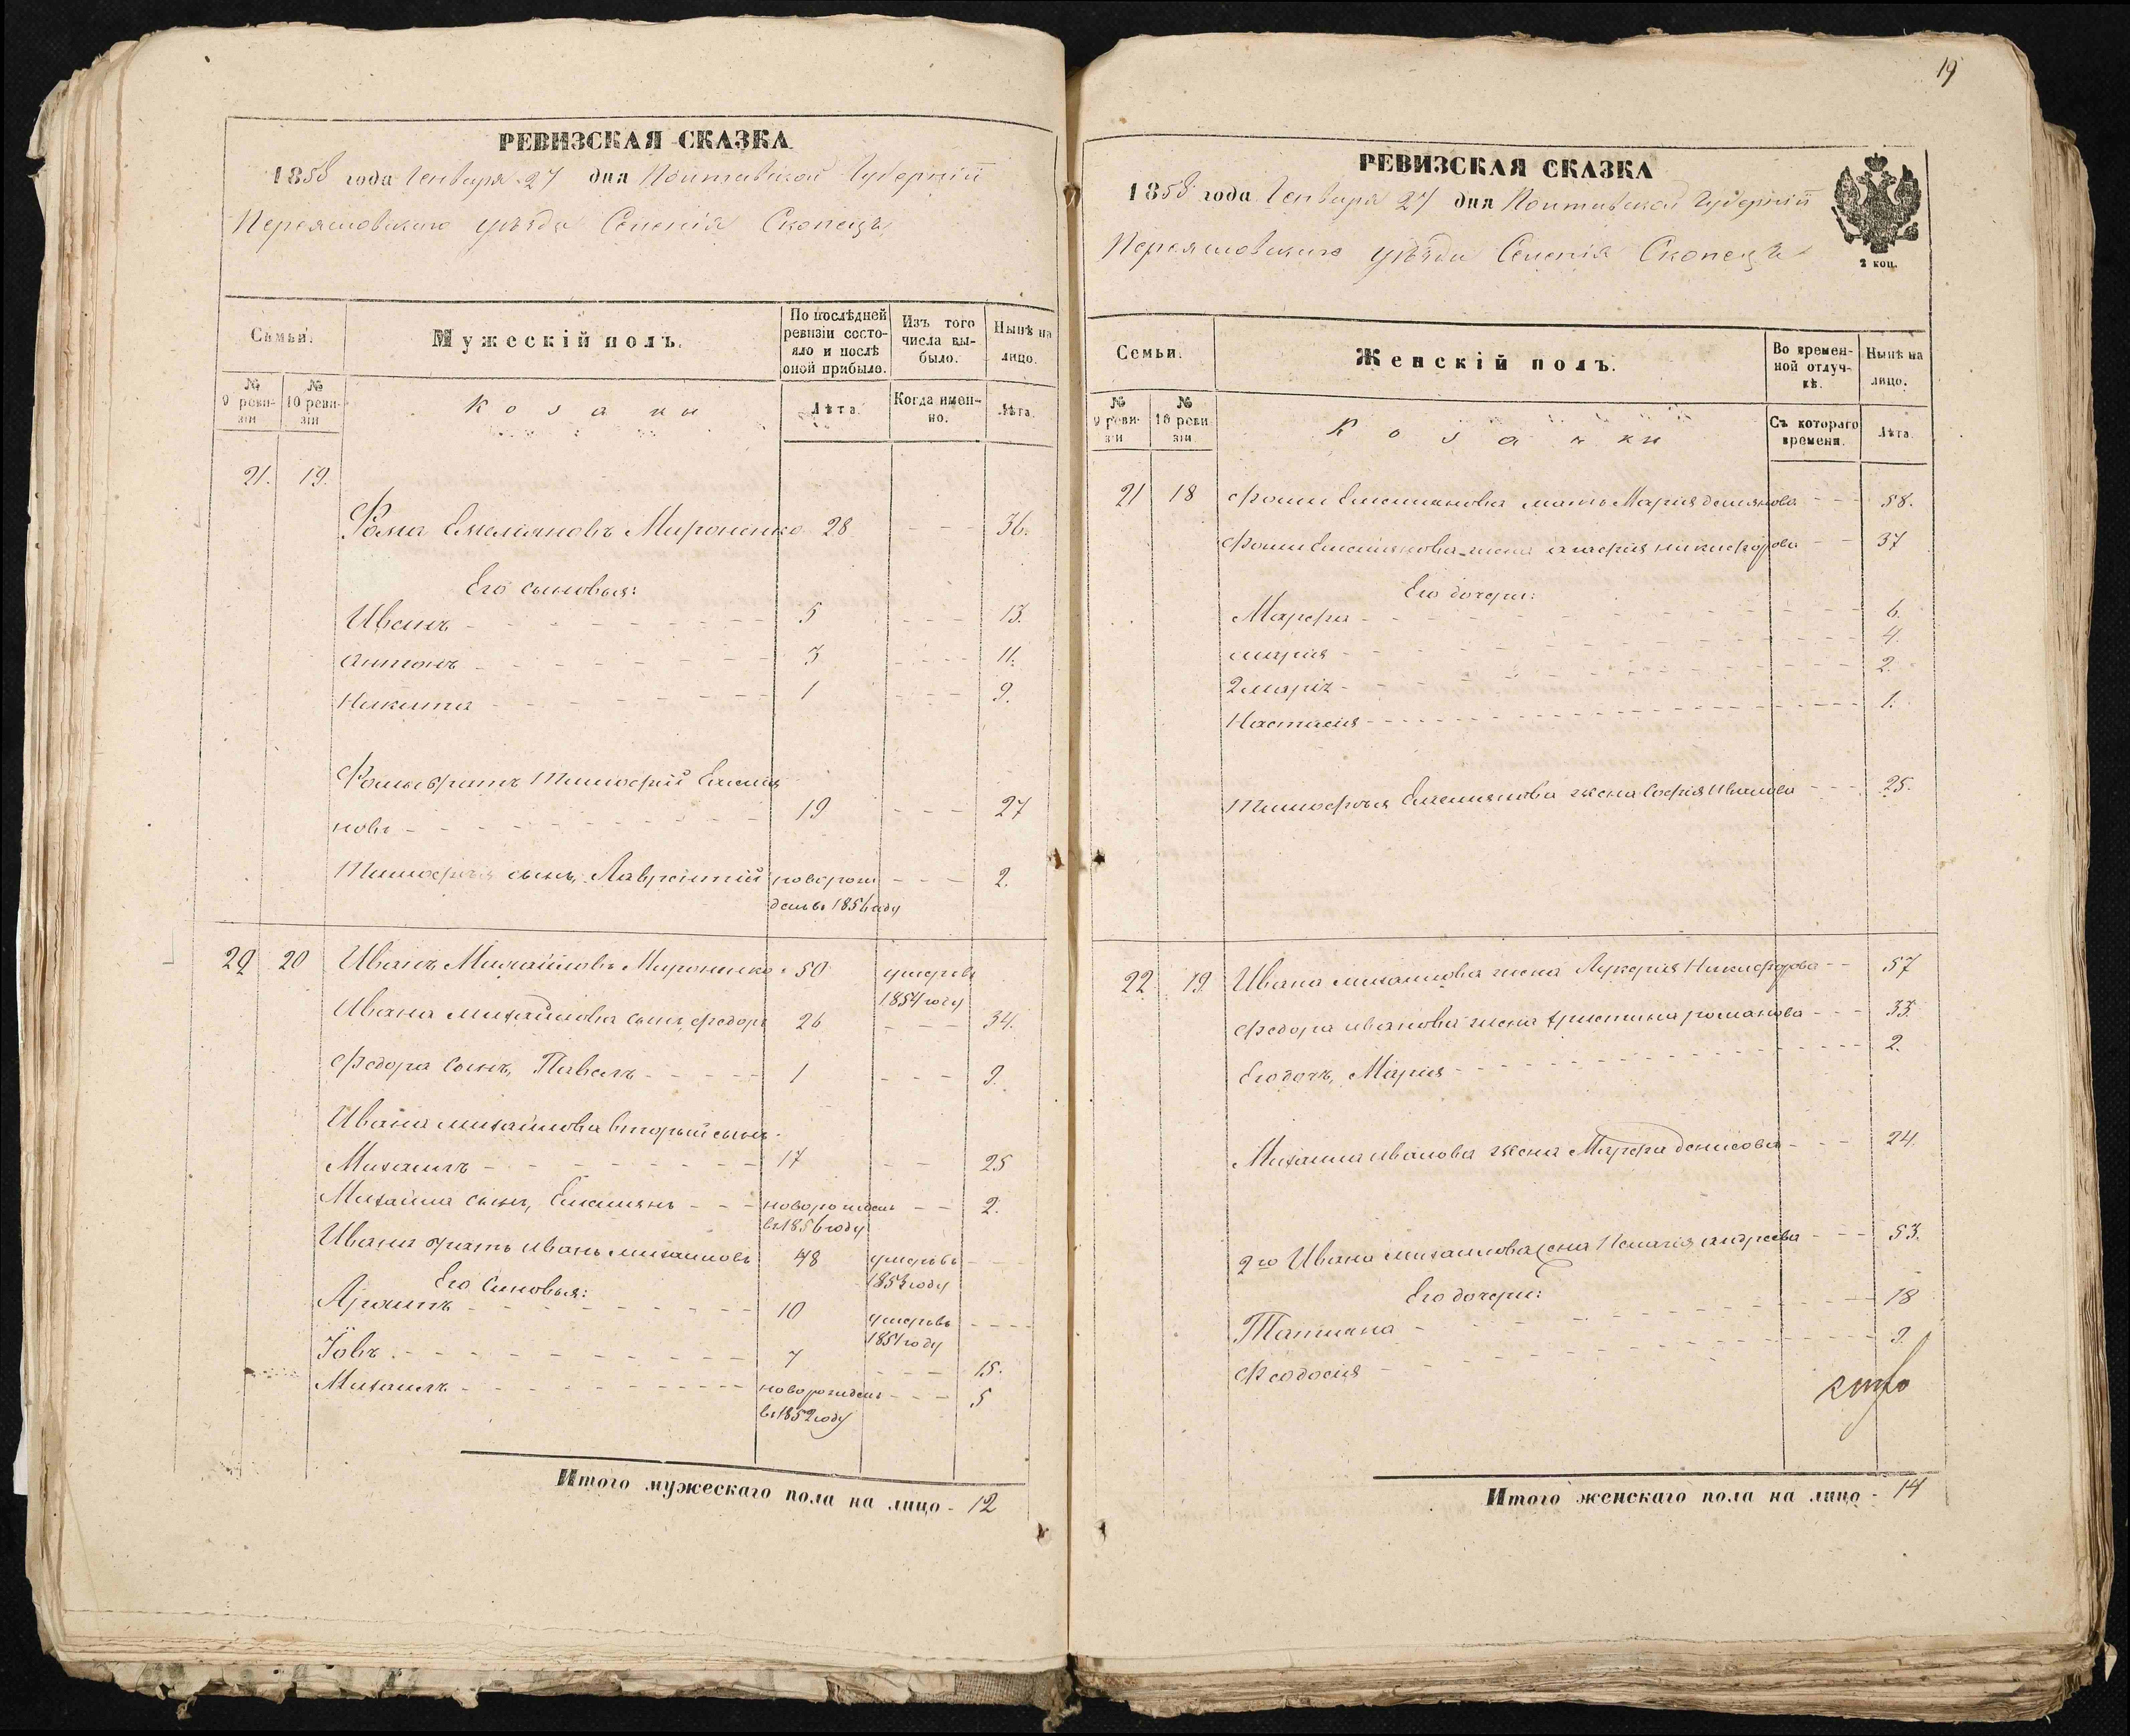 РЕВИЗСКАЯ СКАЗКА
1858 года Генваря 27 дня Полтавской Губерніи
Переяловскаго уѣзда Селенія Скопецъ
Семьи.
Мужескій полъ.
По послѣдней ревизіи состояло и послѣ оной прибыло.
Изъ того числа выбыло.
Нынѣ на лицо.
№ 9 ревизіи
№ 10 ревизіи
Козаки
Лѣта.
Когда именно.
Лѣта.
21. 19.
Фома Емеляновъ Мироненко 28 - - - 36.
Его сыновья:
Иванъ 5 - - - 13.
Антонъ 3 - - - 11.
Никита 1 - - - 9.
Фомы братъ Тимофей Емеля
новъ 19 - - - 27
Тимофея сынъ, Лаврентій новорож - - - 2.
денъ въ 1856 году
22 20 Иванъ Михайловъ Мироненко 50 умеръ въ
1854 году
Ивана Михайлова сынъ, Федоръ 26 - - - 34.
Федора сынъ, Павелъ 1 - - - 9.
Ивана Михайлова вторый сынъ
Михаилъ 17 - - 25
Михаила сынъ, Емелянъ новорожденъ - - 2.
въ 1856 году
Ивана братъ Иванъ Михаиловъ 48 умеръ въ
1853 году
Его сыновья:
10 умеръ въ
1851 году
Іовъ 7 - - - 15.
Михаилъ новорожденъ - - - 5
въ 1852 году
Итого мужескаго пола на лицо - 12
19
РЕВИЗСКАЯ СКАЗКА
1858 года Генваря 27 дня Полтавской Губерніи
Переяловскаго уѣзда Селенія Скопецъ
2 коп.
Семьи.
Женскій полъ.
Во временной отлучкѣ.
Нынѣ на лицо.
№ 9 ревизіи
№ 10 ревизіи
Козачки
Съ котораго времени.
Лѣта.
21 18 Фомы Емельянова мать Марія Демянова - - - 58.
Фомы Емельянова жена Никифорова - - 37
Его дочери:
Марфа 6.
Марія 4.
2 Марія 2.
Настасия 1.
Тимофея Емелянова жена Софія Иванова - - - 25.
22. 19. Ивана Михаилова жена Лукерия Никифорова - - 57
Федора Иванова жена Христина Романова - - - 33.
Его дочь, Мария 2.
Михаила Иванова жена Марфа Денисова - - - 24.
2го Ивана Михаилова жена Пелагія Андреева - - - 53.
Его дочери:
Татияна 18
Феодосия 9.
Итого женскаго пола на лицо - 14